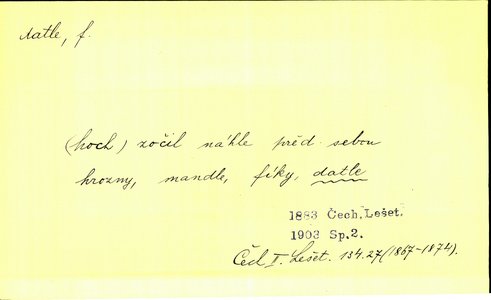 datle, f.
(hoch) zočil náhle před sebou
hrozny, mandle, fíky, datle
1883 Čech. Lešet.
1903 Sp.2.
Čech II. Lešet. 134.27 (1867-1874).